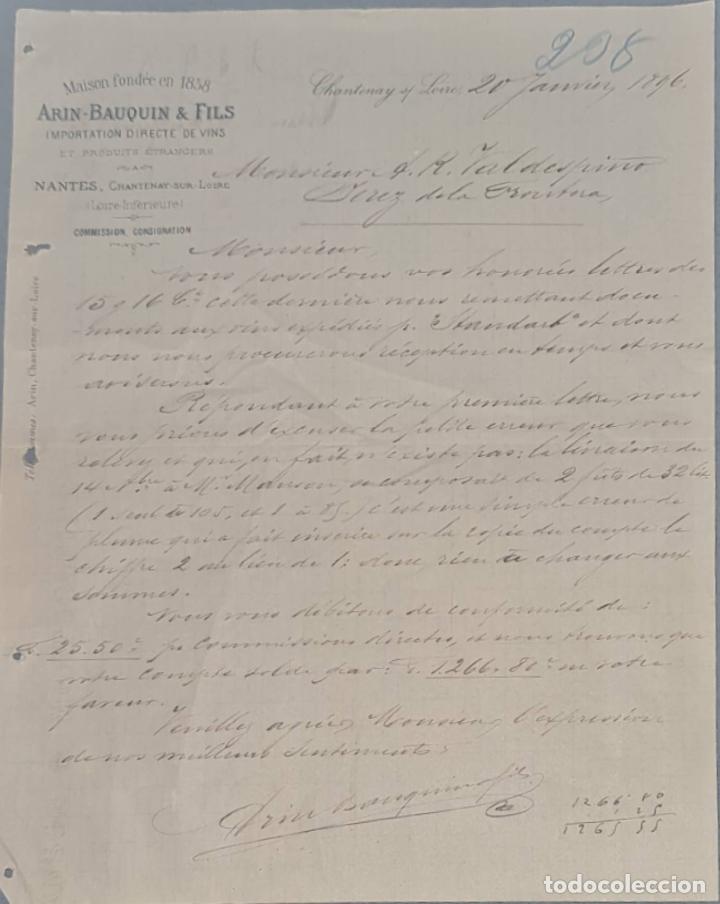 208
Maison fondée en 1858
ARIN-BAUQUIN & FILS
IMPORTATION DIRECTE DE VINS
ET PRODUITS ÉTRANGERS
NANTES, CHANTENAY-SUR-LOIRE
(Loire-Inférieure)
COMMISSION, CONSIGNATION
Télégrammes: Arin, Chantenay sur Loire
Chantenay s/ Loire, 20 Janvier, 1896.
Monsieur A. R. Valdespino
Jerez de la Frontera,
Monsieur,
Nous possédons vos honorées lettres des
15 & 16 Ct. cette dernière nous remettant docu-
ments aux vins expédiés p. "Standart" et dont
nous nous procurerons réception en temps et vous
aviserons.
Répondant à votre première lettre, nous
vous prions d'excuser la petite erreur que vous
relevez et qui, en fait, n'existe pas: la livraison du
14 Nbre à Mr. Manson, se composait de 2 fûts de 32 lit.
(1 seul de 105, et 1 à 85.) c'est une simple erreur de
plume qui a fait inscrire sur la copie du compte le
chiffre 2 au lieu de 1: donc, rien de changer aux
sommes.
Nous vous débitons de conformité de:
F. 25.50 c. pr commissions directes, et nous trouvons que
votre compte solde par: F. 1.266.80 c. en votre
faveur.
Veuillez agréer, Monsieur, l'expression
de nos meilleurs sentiments.
Arin Bauquin & fils
1266 80
1 25
1265 55
todocoleccion.com